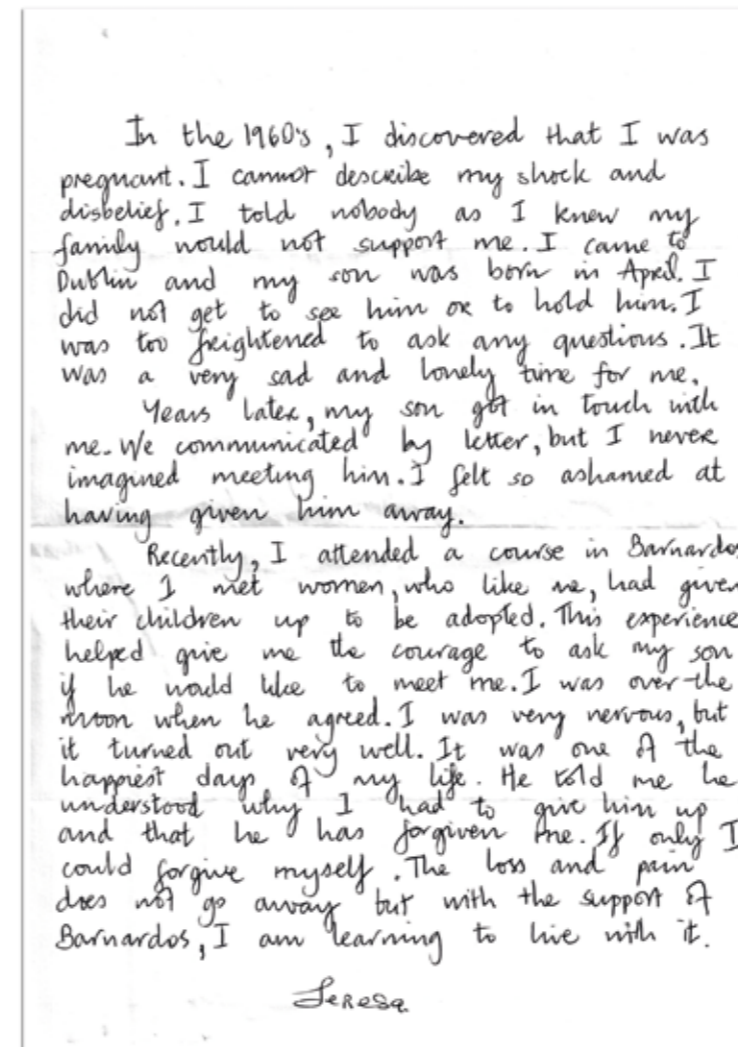 In the 1960's, I discovered that I was
pregnant. I cannot describe my shock and
disbelief. I told nobody as I knew my
family would not support me. I came to
Dublin and my son was born in April. I
did not get to see him or to hold him. I
was too frightened to ask any questions. It
was a very sad and lonely time for me.
Years later, my son got in touch with
me. We communicated by letter, but I never
imagined meeting him. I felt so ashamed at
having given him away.
Recently, I attended a course in Barnardos
where I met women, who like me, had given
their children up to be adopted. This experience
helped give me the courage to ask my son
if he would like to meet me. I was over-the
moon when he agreed. I was very nervous, but
it turned out very well. It was one of the
happiest days of my life. He told me he
understood why I had to give him up
and that he has forgiven me. If only I
could forgive myself. The loss and pain
does not go away but with the support of
Barnardos, I am learning to live with it.
Teresa